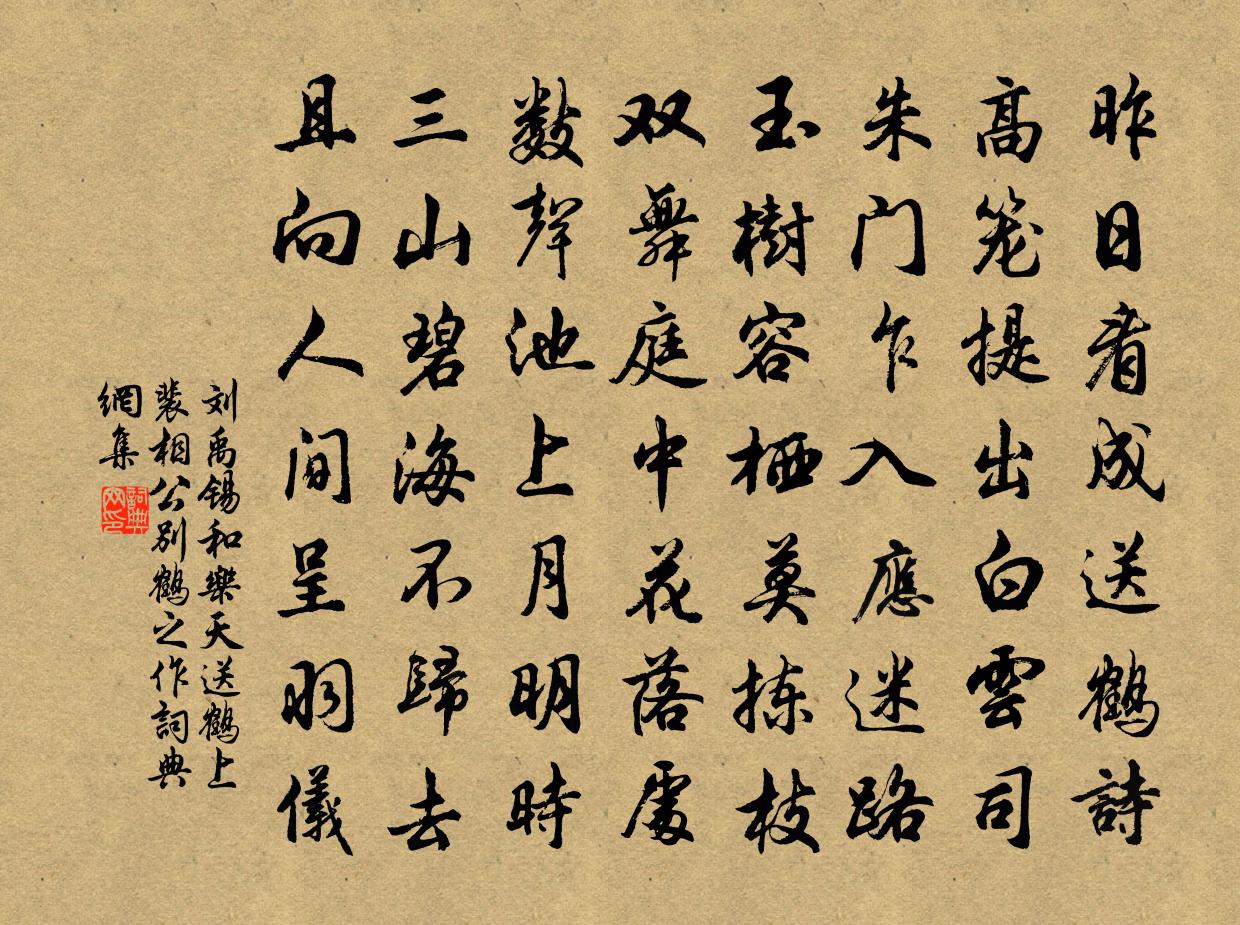 昨日看成送鶴詩
高笼提出白雲司
朱门乍入應迷路
玉樹容栖莫拣枝
双舞庭中花落處
數聲池上月明時
三山碧海不歸去
且向人间呈羽儀
刘禹锡和樂天送鶴上
裴相公别鶴之作詞典
網集
詞典
网印